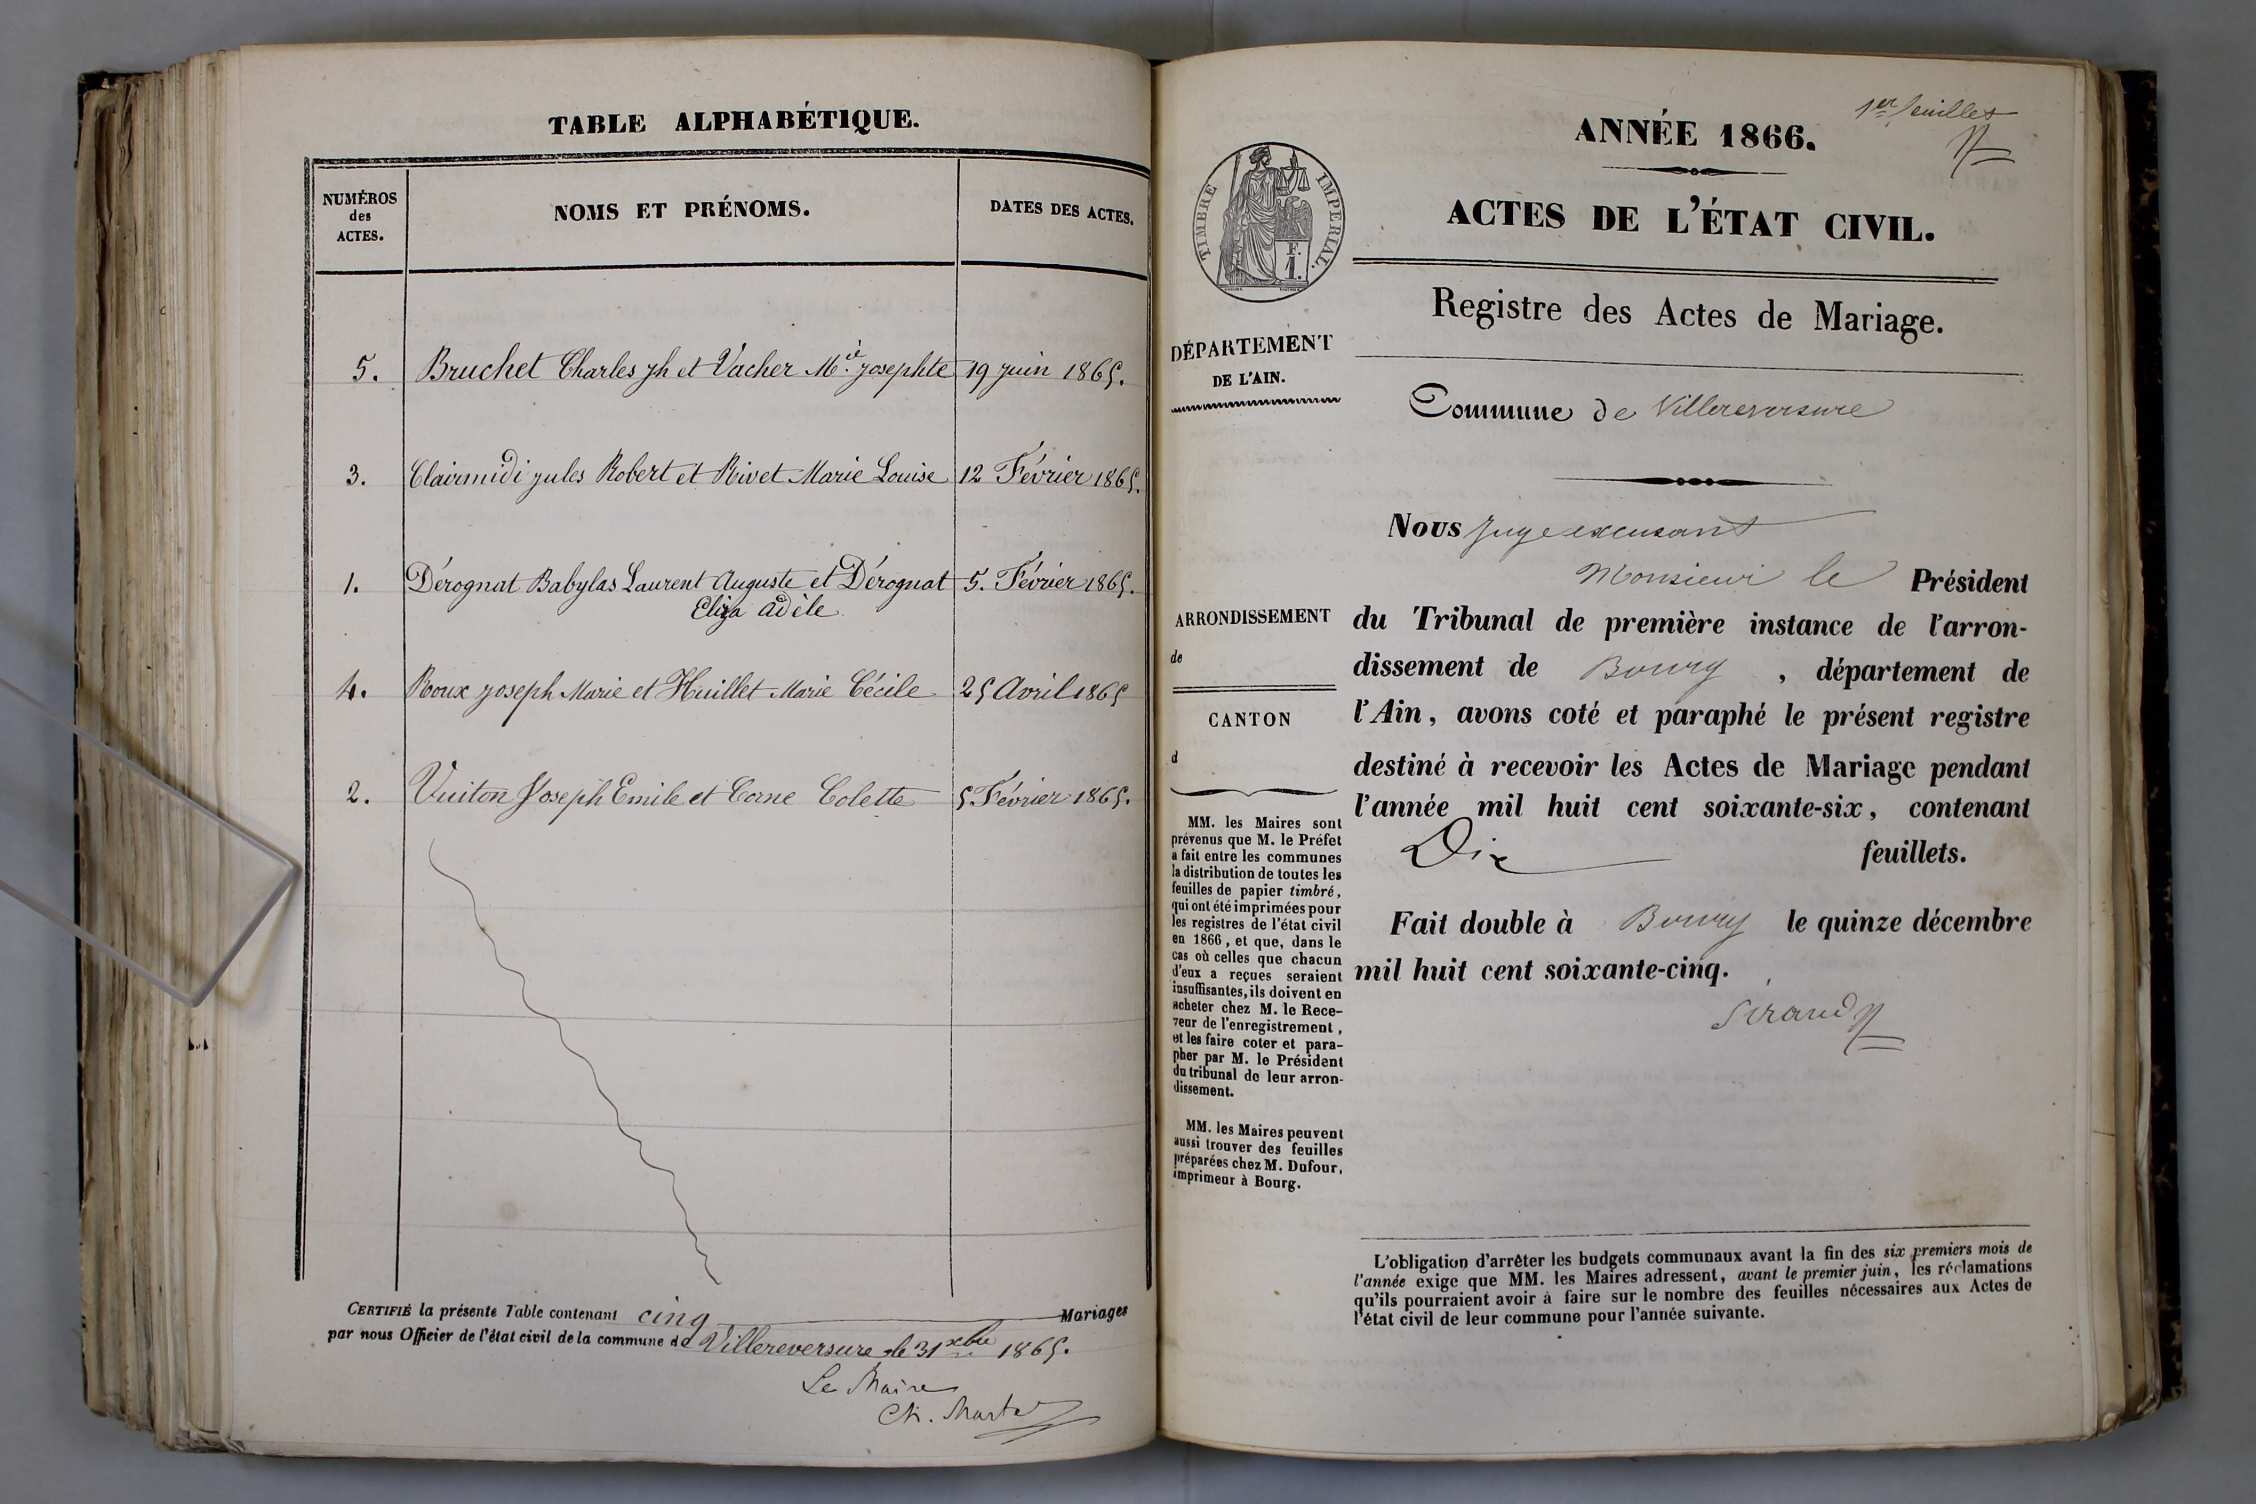 TABLE ALPHABÉTIQUE.
NUMÉROS
des
ACTES.
NOMS ET PRÉNOMS.
DATES DES ACTES.
5. Bruchet Charles jh et Vacher Mie. josephte 19 juin 1865.
3. Clairmidi jules Robert et Rivet Marie Louise 12 Février 1865.
1. Dérognat Babylas Laurent Auguste et Dérognat 5. Février 1865.
Eliza adèle
4. Roux joseph Marie et Huillet Marie Cécile 25 Avril 1865
2. Vuiton Joseph Emile et Corne Colette 5 Février 1865.
CERTIFIÉ la présente Table contenant cinq Mariages
par nous Officier de l'état civil de la commune de Villereversure le 31 xbre 1865.
Le Maire
Ch.
1er feuillet
ANNÉE 1866.
TIMBRE IMPERIAL.
F.
1.
ACTES DE L'ÉTAT CIVIL.
Registre des Actes de Mariage.
DÉPARTEMENT
DE L'AIN.
Commune de Villereversure
Nous juge excusant
Monsieur le Président
du Tribunal de première instance de l'arron-
dissement de Bourg, département de
l'Ain, avons coté et paraphé le présent registre
destiné à recevoir les Actes de Mariage pendant
l'année mil huit cent soixante-six, contenant
Dix feuillets.
Fait double à Bourg le quinze décembre
mil huit cent soixante-cinq.
Sirand
ARRONDISSEMENT
de
CANTON
d
MM. les Maires sont
prévenus que M. le Préfet
a fait entre les communes
la distribution de toutes les
feuilles de papier timbré,
qui ont été imprimées pour
les registres de l'état civil
en 1866, et que, dans le
cas où celles que chacun
d'eux a reçues seraient
insuffisantes, ils doivent en
acheter chez M. le Rece-
veur de l'enregistrement,
et les faire coter et para-
pher par M. le Président
du tribunal de leur arron-
dissement.
MM. les Maires peuvent
aussi trouver des feuilles
préparées chez M. Dufour,
imprimeur à Bourg.
L'obligation d'arrêter les budgets communaux avant la fin des six premiers mois de
l'année exige que MM. les Maires adressent, avant le premier juin, les réclamations
qu'ils pourraient avoir à faire sur le nombre des feuilles nécessaires aux Actes de
l'état civil de leur commune pour l'année suivante.